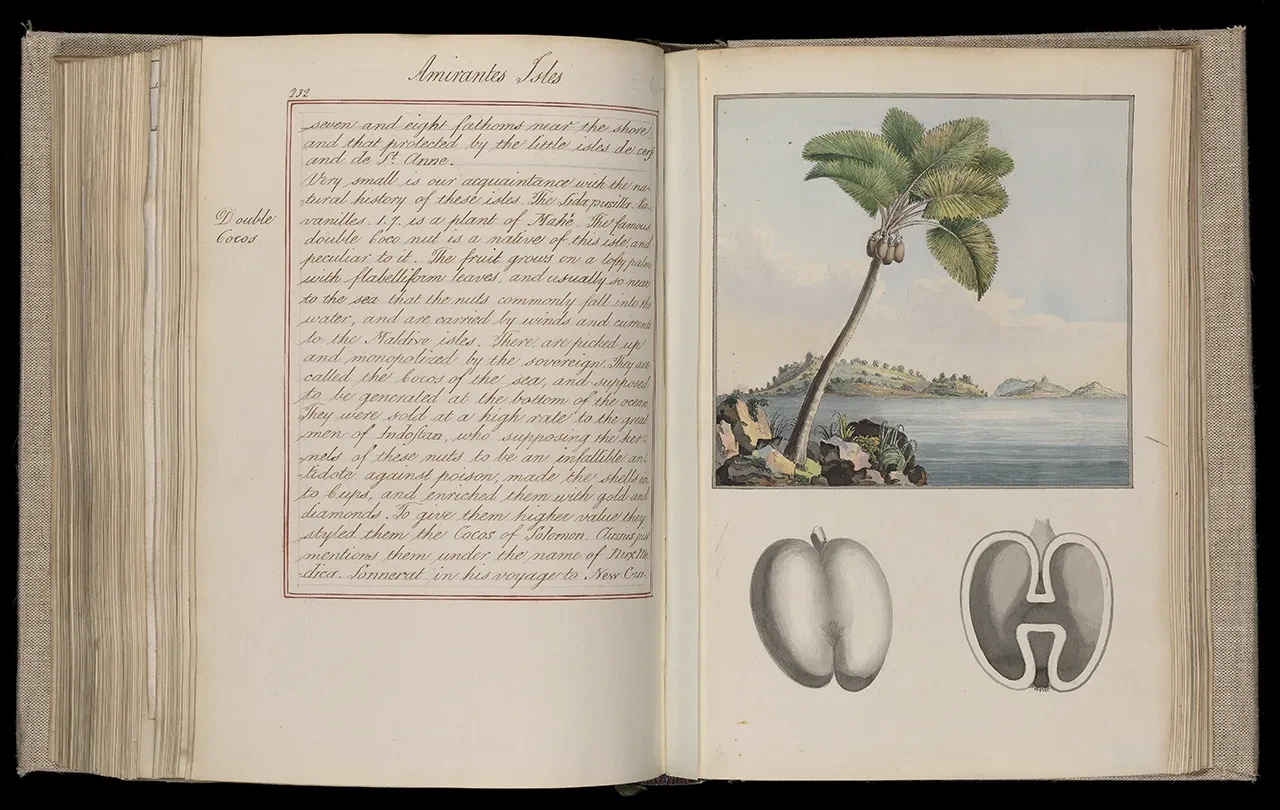 Amirantes Isles
232
seven and eight fathoms near the shore,
and that protected by the little isles de cerf
and de St. Anne.
Very small is our acquaintance with the na-
tural history of these isles. The Sida pusilla. Ca-
vanilles. 1.7. is a plant of Mahé. The famous
Double
Cocos
double Coco nut is a native of this isle, and
peculiar to it. The fruit grows on a lofty palm
with flabelliform leaves, and usually so near
to the sea that the nuts commonly fall into the
water, and are carried by winds and currents
to the Maldive isles. There, are picked up
and monopolized by the sovereign. They are
called the Cocos of the sea, and supposed
to be generated at the bottom of the ocean.
They were sold at a high rate to the great
men of Indostan, who supposing the ker-
nels of these nuts to be an infallible an-
tidote against poison, made the shells in
to Cups, and enriched them with gold and
diamonds. To give them higher value they
styled them the Cocos of Solomon. Clusius just
mentions them under the name of Nux Me
dica. Sonnerat in his voyage to New Gui-